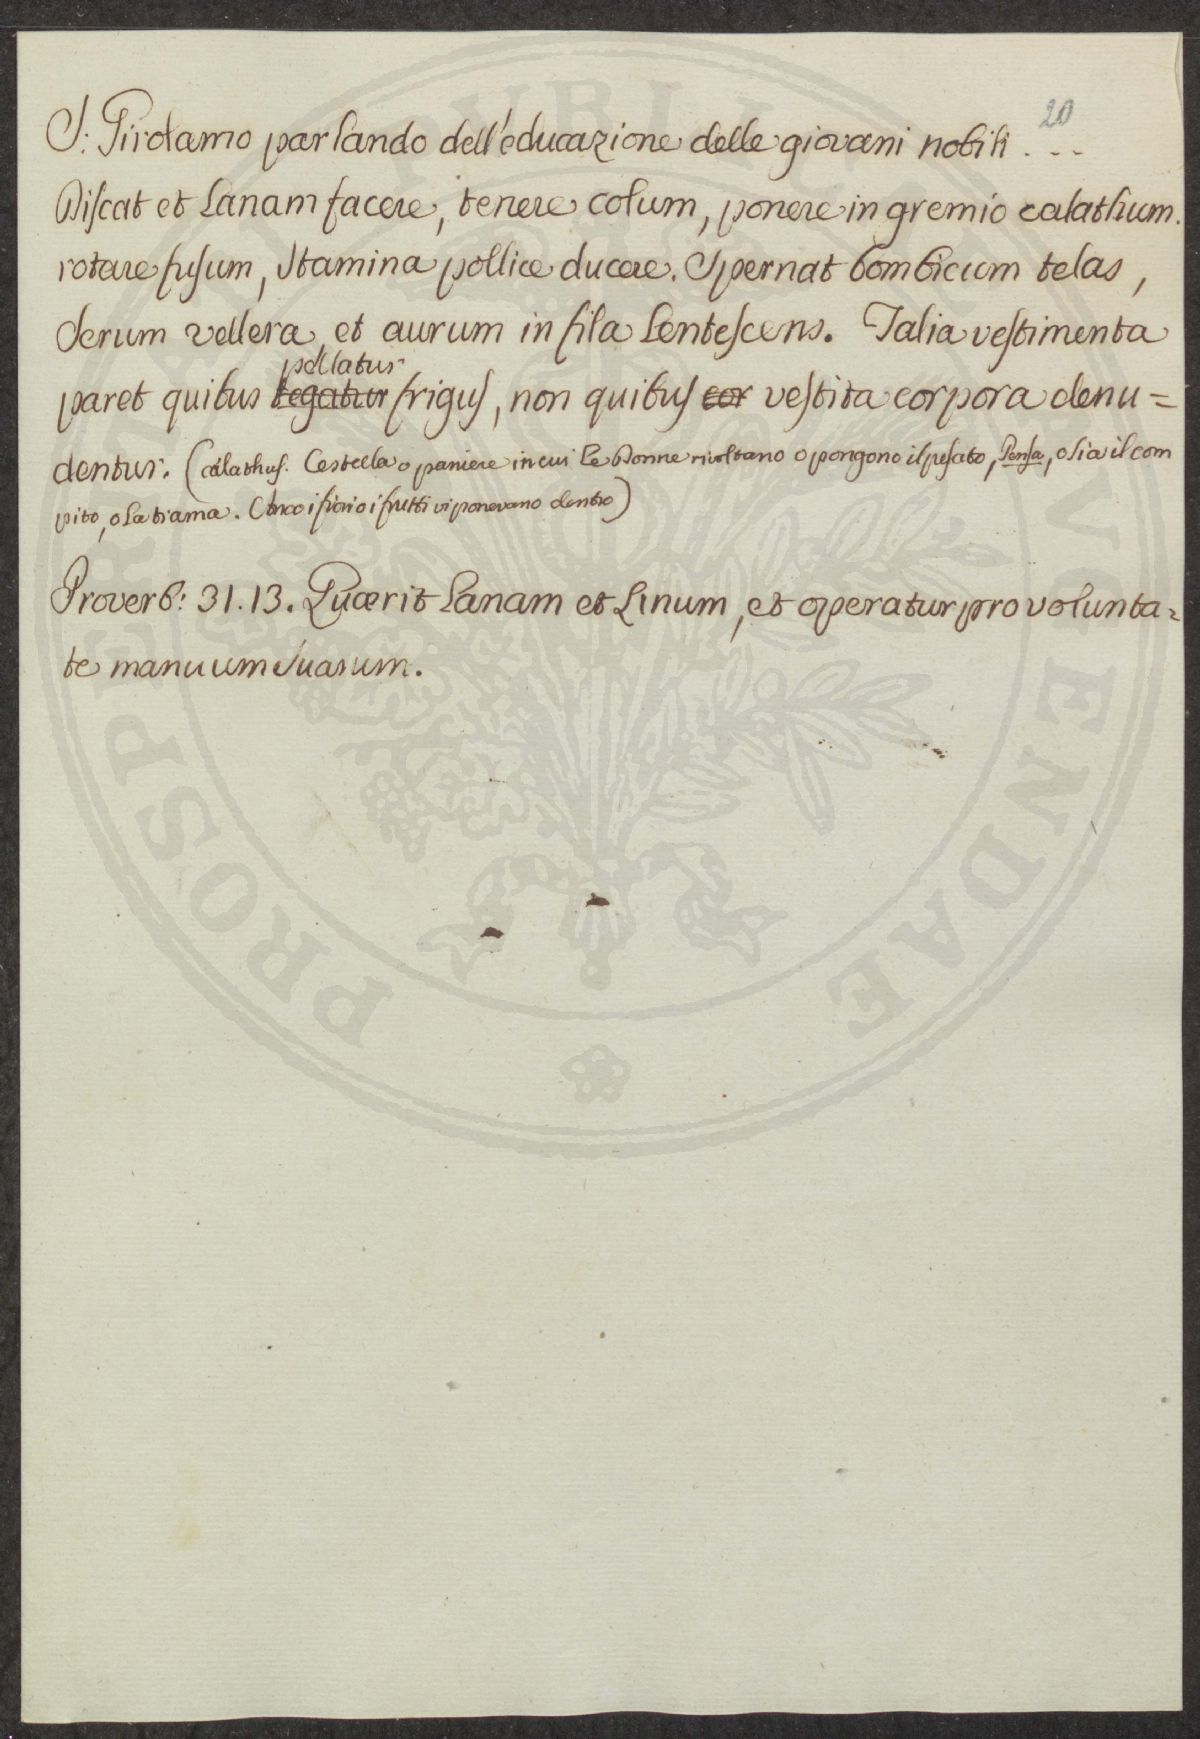 20
S: Girolamo parlando dell'educazione delle giovani nobili . . .
Discat et Lanam facere, tenere colum, ponere in gremio calathum.
rotare fusum, Stamina pollice ducere. Spernat bombicum telas,
Serum vellera, et aurum in fila Lentescens. Talia vestimenta
pellatur
paret quibus tegatur frigus, non quibus cor vestita corpora denu=
dentur. (calathus. Cestella o paniere in cui Le Donne rivoltano o pongono il pesato, Pensa, o sia il com
pito, o La trama. Anco i fiori o i frutti vi ponevano dentro)
Proverb: 31.13. Quaerit Lanam et Linum, et operatur pro volunta=
te manuum Suarum.
PROSPER VBLIC VOENDAE